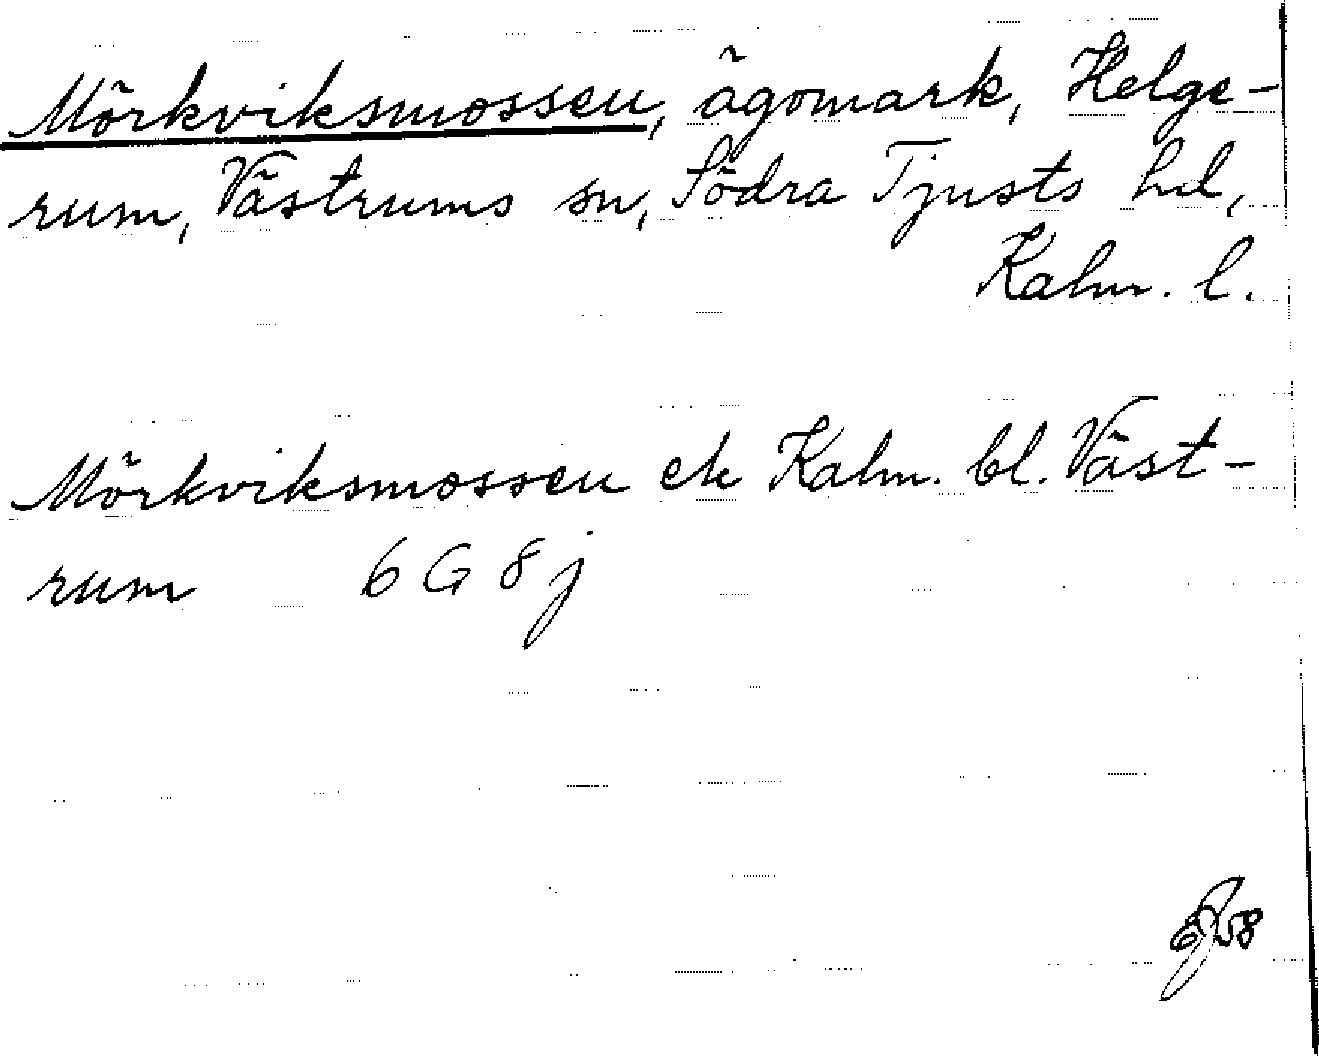 Mörkviksmossen, ägomark, Helge-
rum, Västrums sn, Södra Tjusts hd,
Kalm. l.
Mörkviksmossen ek Kalm. bl. Väst-
rum 6 G 8 j